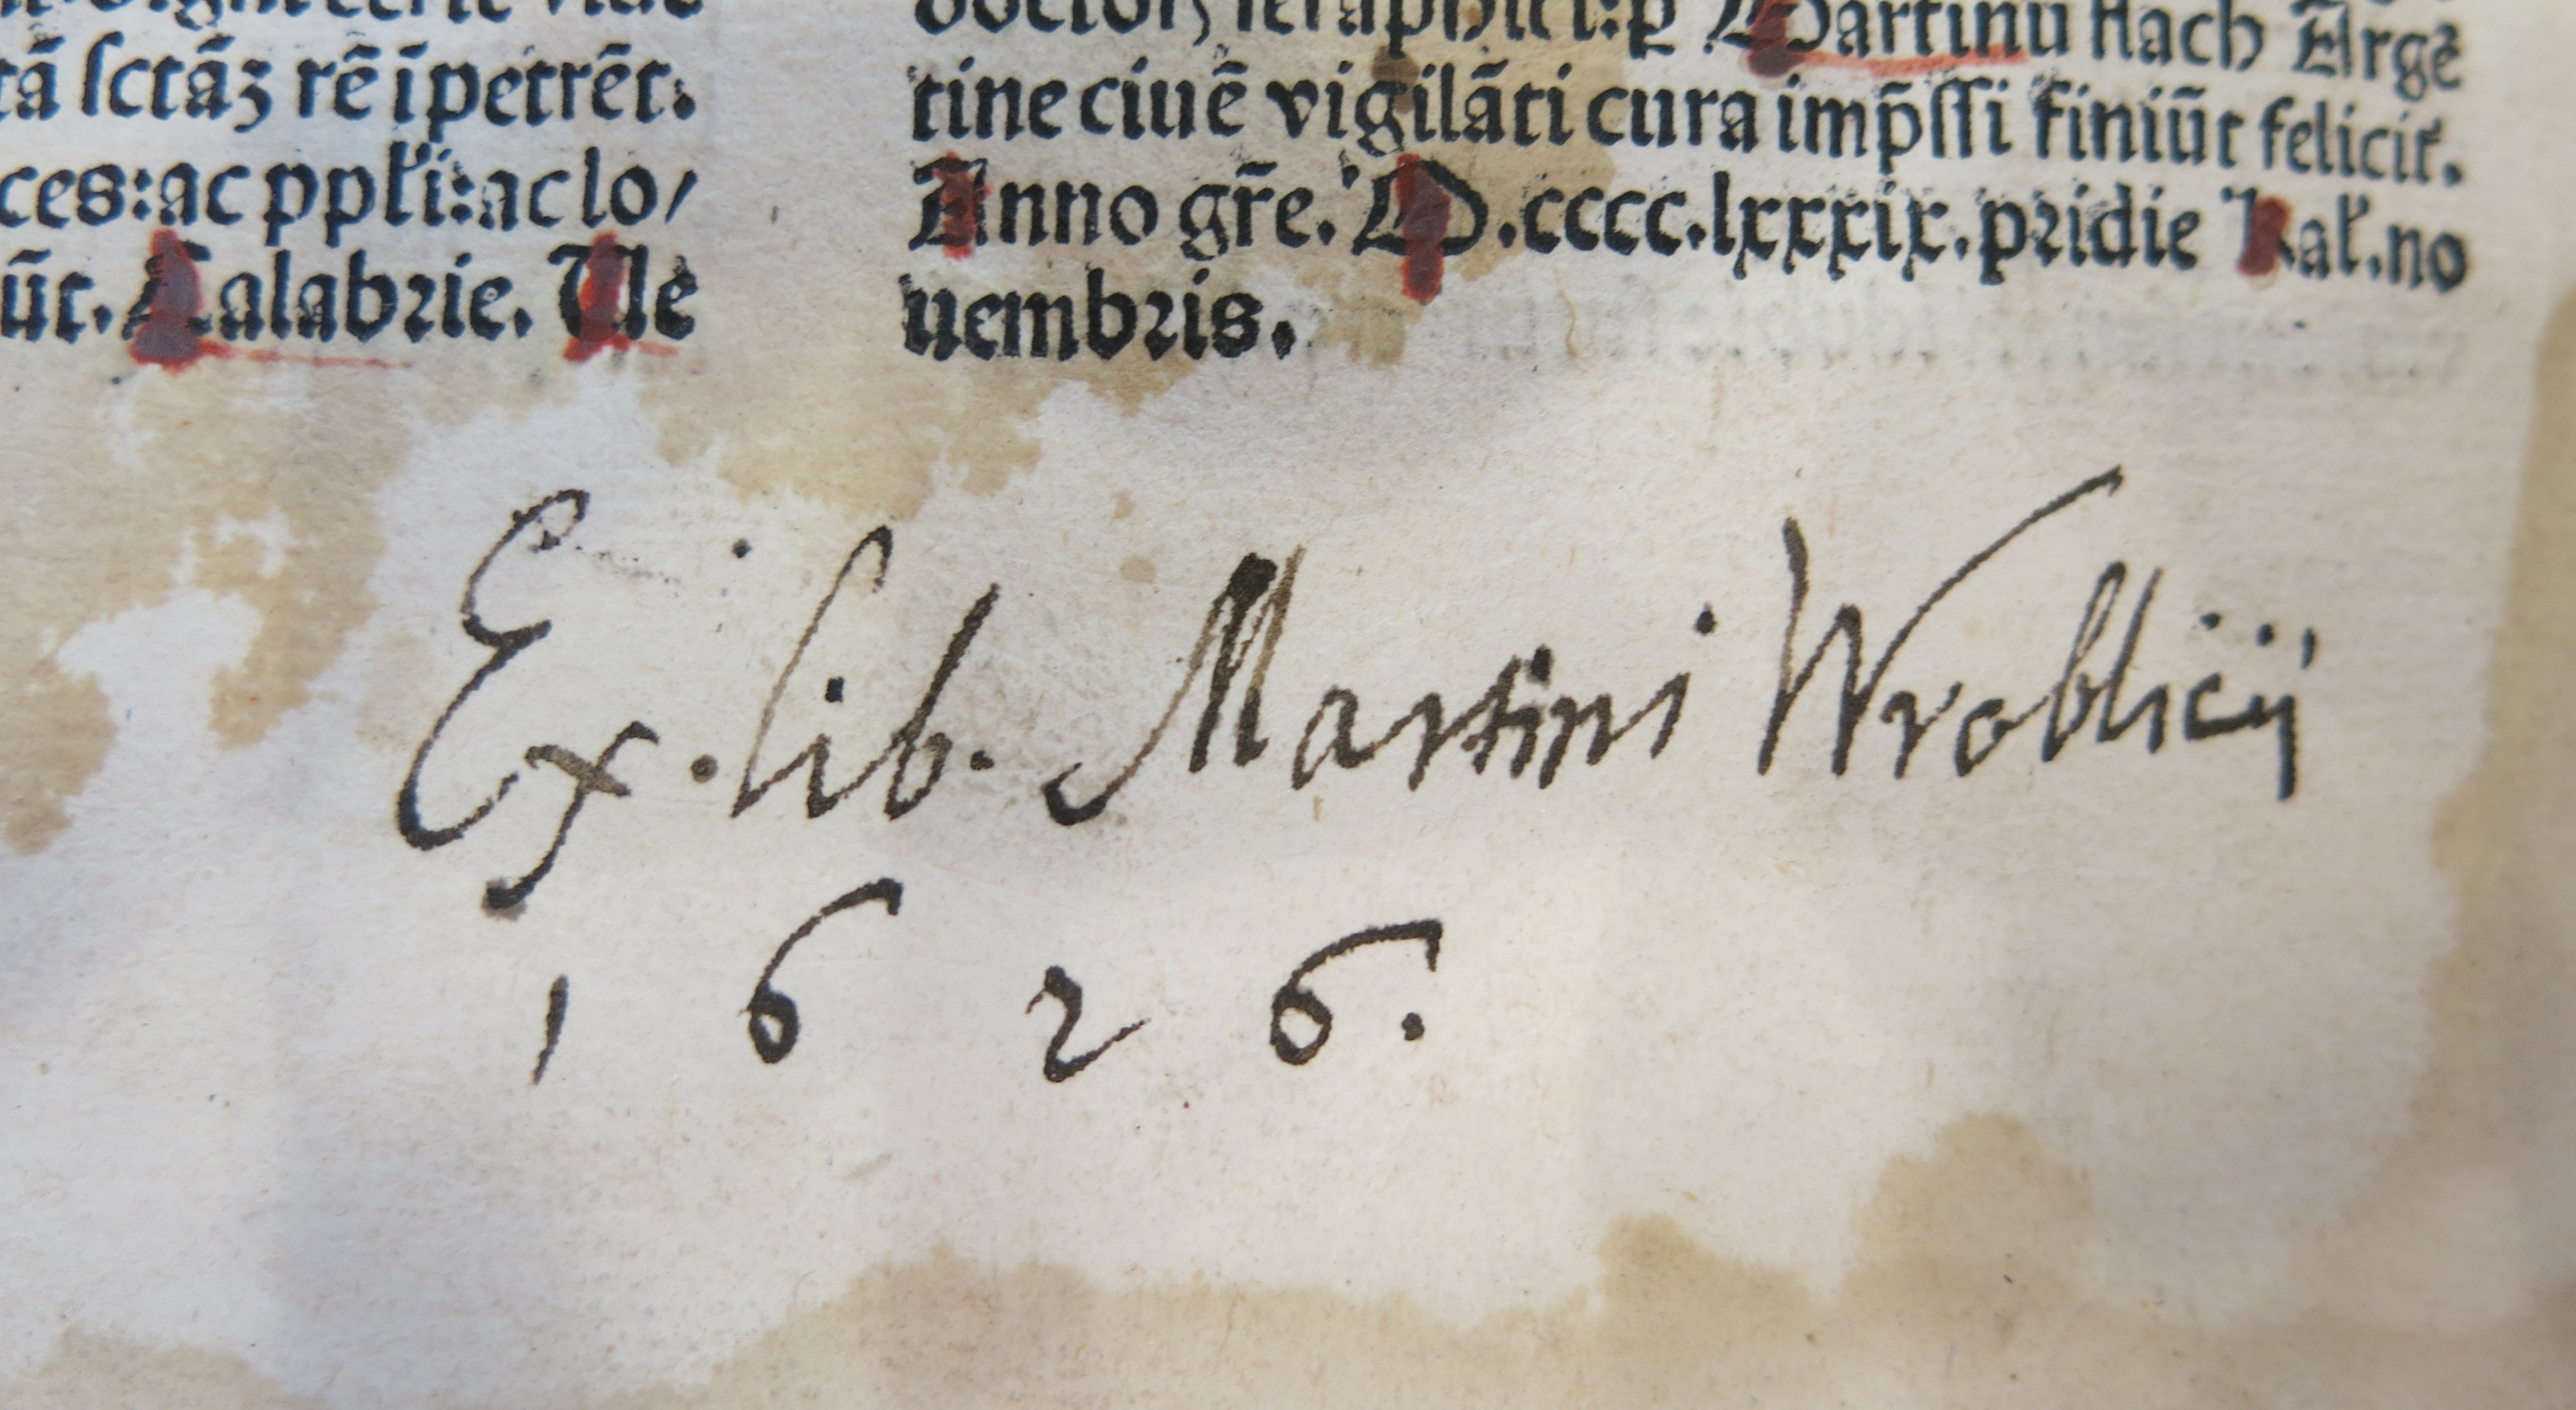 tā ſctāꝫ rē īpetrēt.
ces:ac ppl̄i:ac lo/
ūt. Calabrie. Ale
doctoꝝ ſeraphici:ꝑ Martinū flach Argē
tine ciuē vigilāti cura imp̄ſſi finiūt felicit̄.
Anno gr̄e. M.cccc.lxxxix. pridie kal̄.no
uembris.
Ex. lib. Martini Wroblicij
1626.